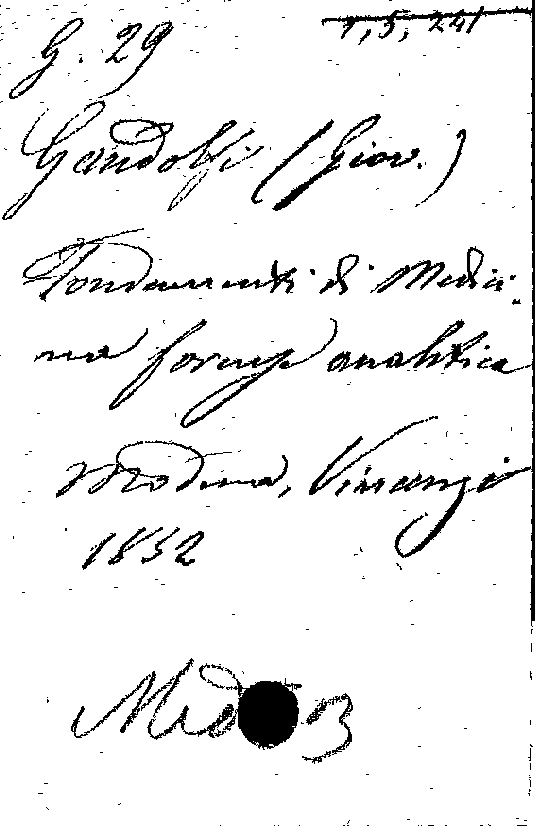 G. 29
1, 5, 241
Gandolfi (Giov.)
Fondamenti di Medici-
na forense analitica
Modena, Vincenzi
1852
Med B